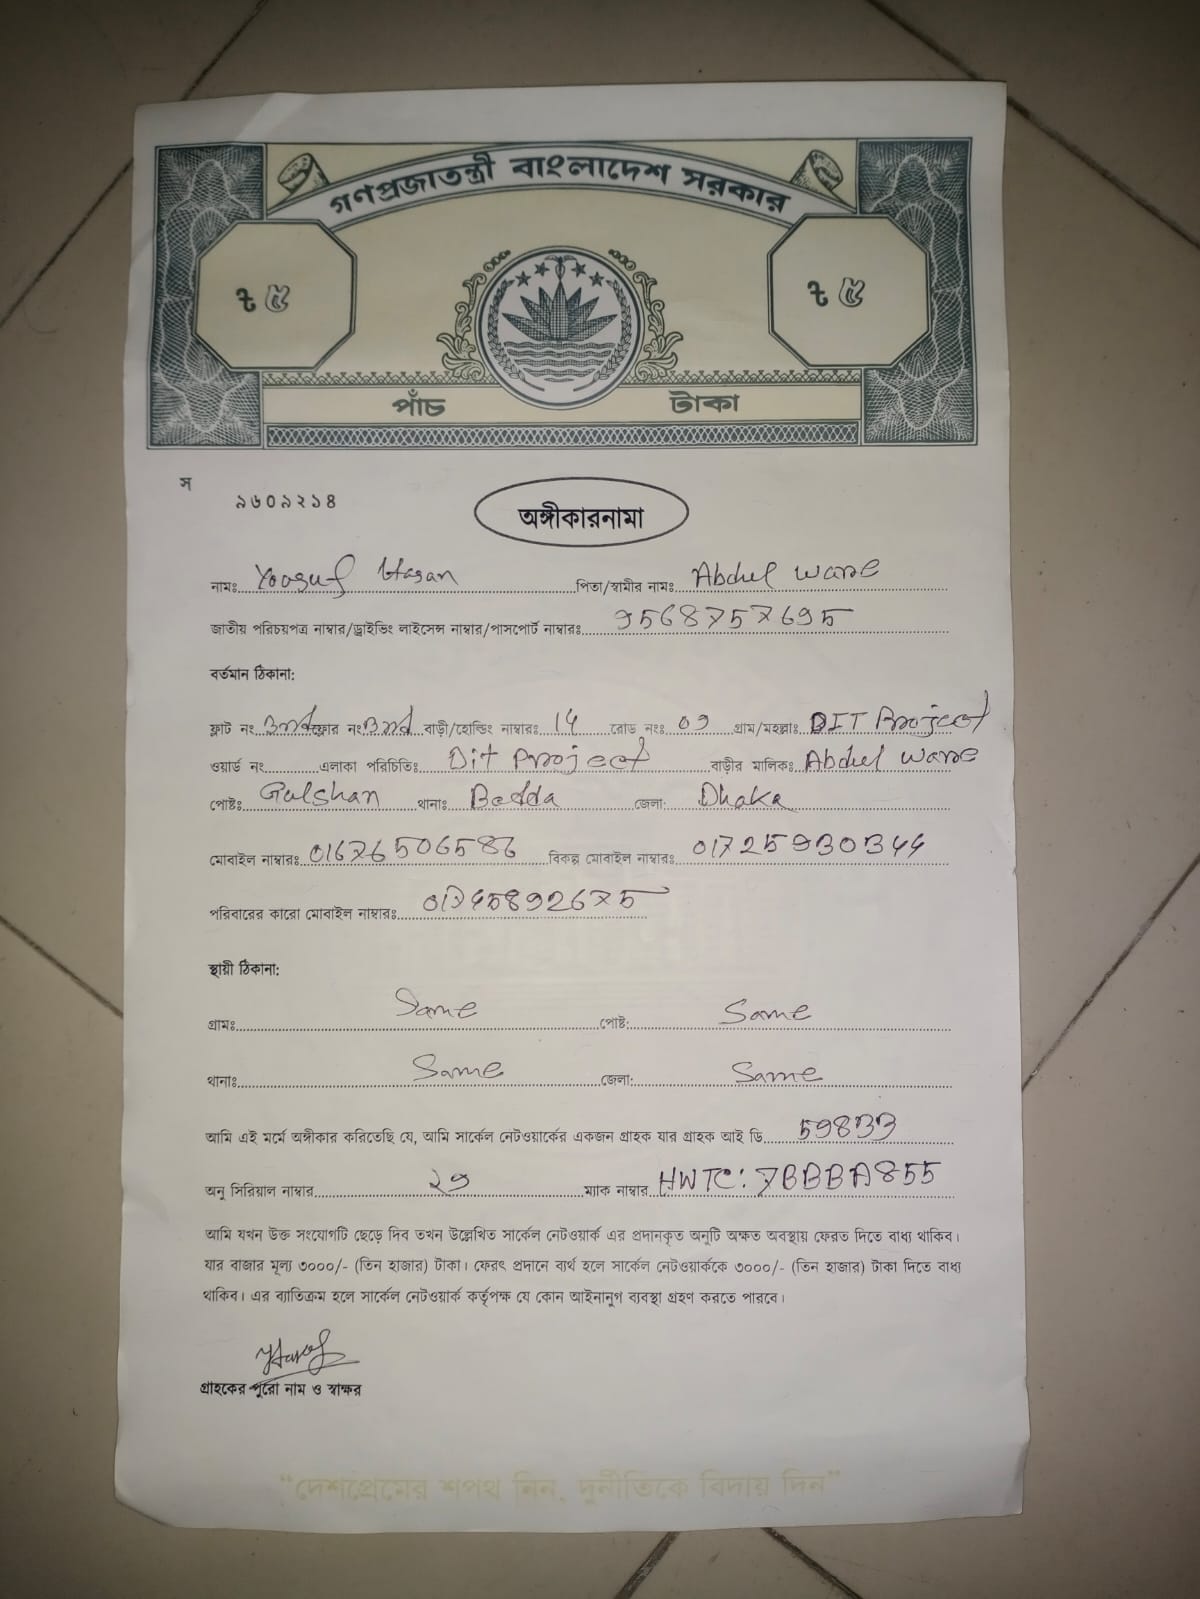 গণপ্রজাতন্ত্রী বাংলাদেশ সরকার
৳ ৫ ৳ ৫
পাঁচ টাকা
স
৯৬০৯২১৪
অঙ্গীকারনামা
নামঃ Yousuf Hasan পিতা/স্বামীর নামঃ Abdul
জাতীয় পরিচয়পত্র নাম্বার/ড্রাইভিং লাইসেন্স নাম্বার/পাসপোর্ট নাম্বারঃ 9568757695
বর্তমান ঠিকানা:
ফ্লাট নং ফ্লোর নং বাড়ী/হোল্ডিং নাম্বারঃ 14 রোড নংঃ 09 গ্রাম/মহল্লাঃ DIT Project
ওয়ার্ড নং এলাকা পরিচিতিঃ Dit Project বাড়ীর মালিকঃ Abdul
পোষ্টঃ Gulshan থানাঃ Badda জেলা: Dhaka
মোবাইল নাম্বারঃ 01676506586 বিকল্প মোবাইল নাম্বারঃ 01725930344
পরিবারের কারো মোবাইল নাম্বারঃ
স্থায়ী ঠিকানা:
গ্রামঃ Same পোষ্ট: Same
থানাঃ Same জেলা: Same
আমি এই মর্মে অঙ্গীকার করিতেছি যে, আমি সার্কেল নেটওয়ার্কের একজন গ্রাহক যার গ্রাহক আই ডি 59833
অনু সিরিয়াল নাম্বার ২৯ ম্যাক নাম্বার HWTC: 7BBBA855
আমি যখন উক্ত সংযোগটি ছেড়ে দিব তখন উল্লেখিত সার্কেল নেটওয়ার্ক এর প্রদানকৃত অনুটি অক্ষত অবস্থায় ফেরত দিতে বাধ্য থাকিব।
যার বাজার মূল্য ৩০০০/- (তিন হাজার) টাকা। ফেরৎ প্রদানে ব্যর্থ হলে সার্কেল নেটওয়ার্ককে ৩০০০/- (তিন হাজার) টাকা দিতে বাধ্য
থাকিব। এর ব্যাতিক্রম হলে সার্কেল নেটওয়ার্ক কর্তৃপক্ষ যে কোন আইনানুগ ব্যবস্থা গ্রহণ করতে পারবে।
গ্রাহকের পুরো নাম ও স্বাক্ষর
“দেশপ্রেমের শপথ নিন, দুর্নীতিকে বিদায় দিন”